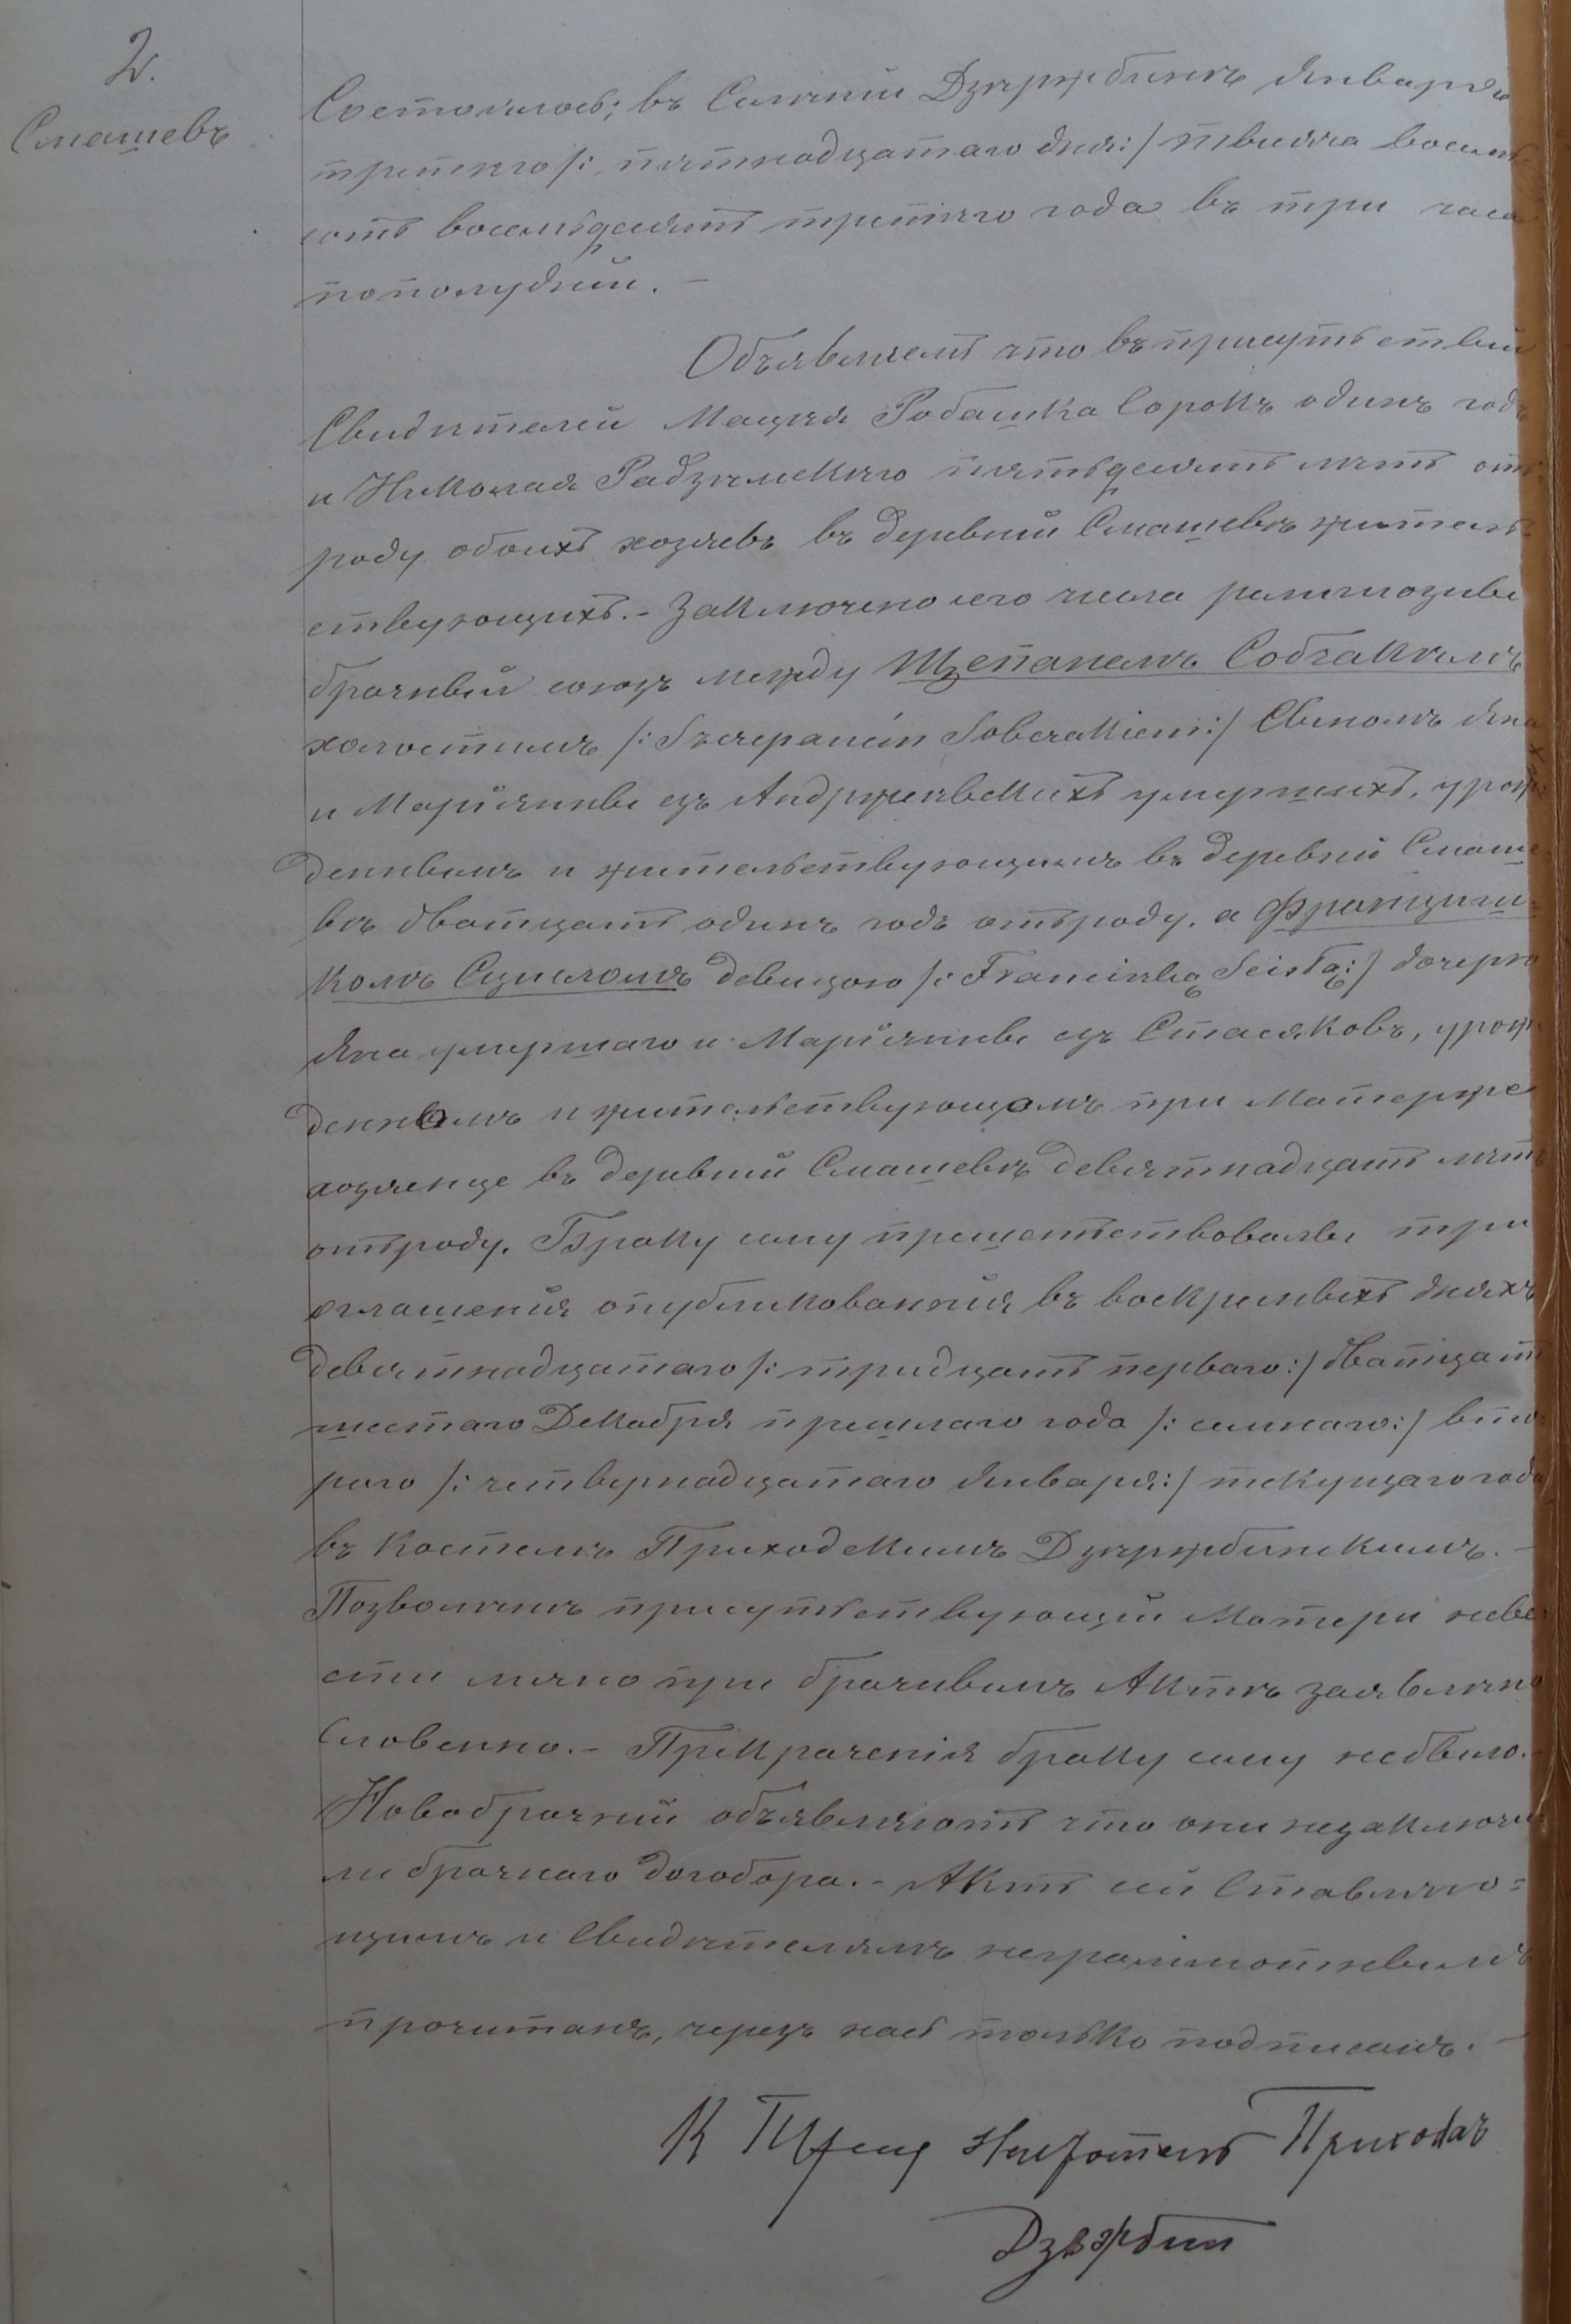 2.
Смашевъ
Состоялось; въ Селеніи Дзержбинѣ Января
третяго /: пятнадцатаго дня:/ тысяча восемь
сотъ восемьдесятъ третяго года въ три часа
пополудній. –
Объявляемъ что въ присутьствіи
Свидѣтелей Мацея Робашка сорокъ одинъ годъ
и Николая Радзимскаго пятьдесятъ лѣтъ отъ
роду обоихъ хозяевъ въ деревнѣи Смашевѣ житель-
ствующихъ. – Заключено сего числа религіозны
брачный союзъ между Щепанемъ Собчакемъ
холостимъ /: Szczepanem Sobczakiem:/ Сыномъ Яна
и Маріянны езъ Андржеевскихъ умершихъ, урож-
деннымъ и жительствующимъ въ деревнѣи Смаше
вѣ дватцать одинъ годъ отъроду. а Францишъ-
комъ Сцисломъ девицою /: Franciszką Scisłą:/ дочерю
Яна умершаго и Маріянны езъ Стасяковъ, урож-
денномъ и жительствующомъ при Матерже
хозяенце въ деревнѣи Смашевѣ девятнадцать лѣтъ
отъроду. Браку сему прешетьствовалы три
оглашенія опубликованныя въ воскресныхъ дняхъ
девятнадцатаго /: тридцать перваго:/ дватцать
шестаго Декабря прешлаго года /: семнаго:/ вто
раго /: четвернадцатаго Января:/ текущаго года
въ Костелѣ Приходскимъ Дзержбинскимъ. –
Позволенемъ присутьствующей Матери неве-
сти лично при брачнымъ Актѣ заявлено
словенно. – Прекраченія браку сему небыло. –
Новобрачній объявляютъ что они незаключи-
ли брачнаго договора. – Актъ сей Ставляю=
щимъ и Свидѣтелямъ неграмотнымъ
прочитанъ, черезъ насъ только подписанъ. –
К Приход
Дзержбин